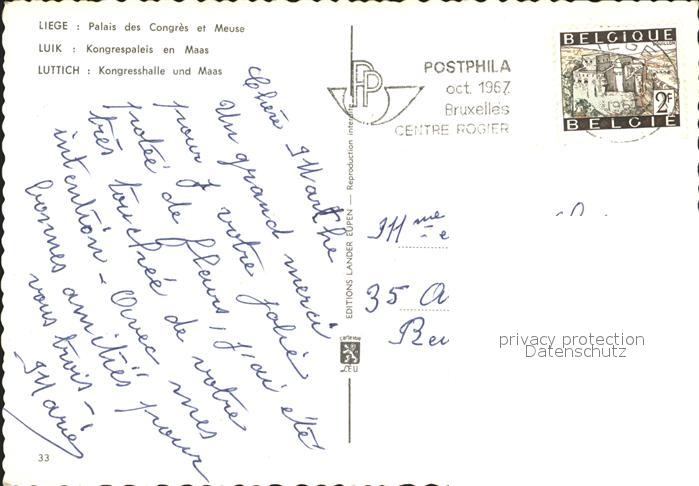 LIEGE : Palais des Congrès et Meuse
LUIK : Kongrespaleis en Maas
LUTTICH : Kongresshalle und Maas
Chère Marthe
Un grand merci
pour votre jolie
potée de fleurs, j'ai été
très touchée de votre
intention - Avec mes
bonnes amitiés pour
vous trois -
Marie
33
EDITIONS LANDER EUPEN — Reproduction interdite
PP
POSTPHILA
oct. 1967
Bruxelles
CENTRE ROGIER
BELGIQUE
LIEGE
2F
BELGIË
Mme
35 A
privacy protection
Datenschutz